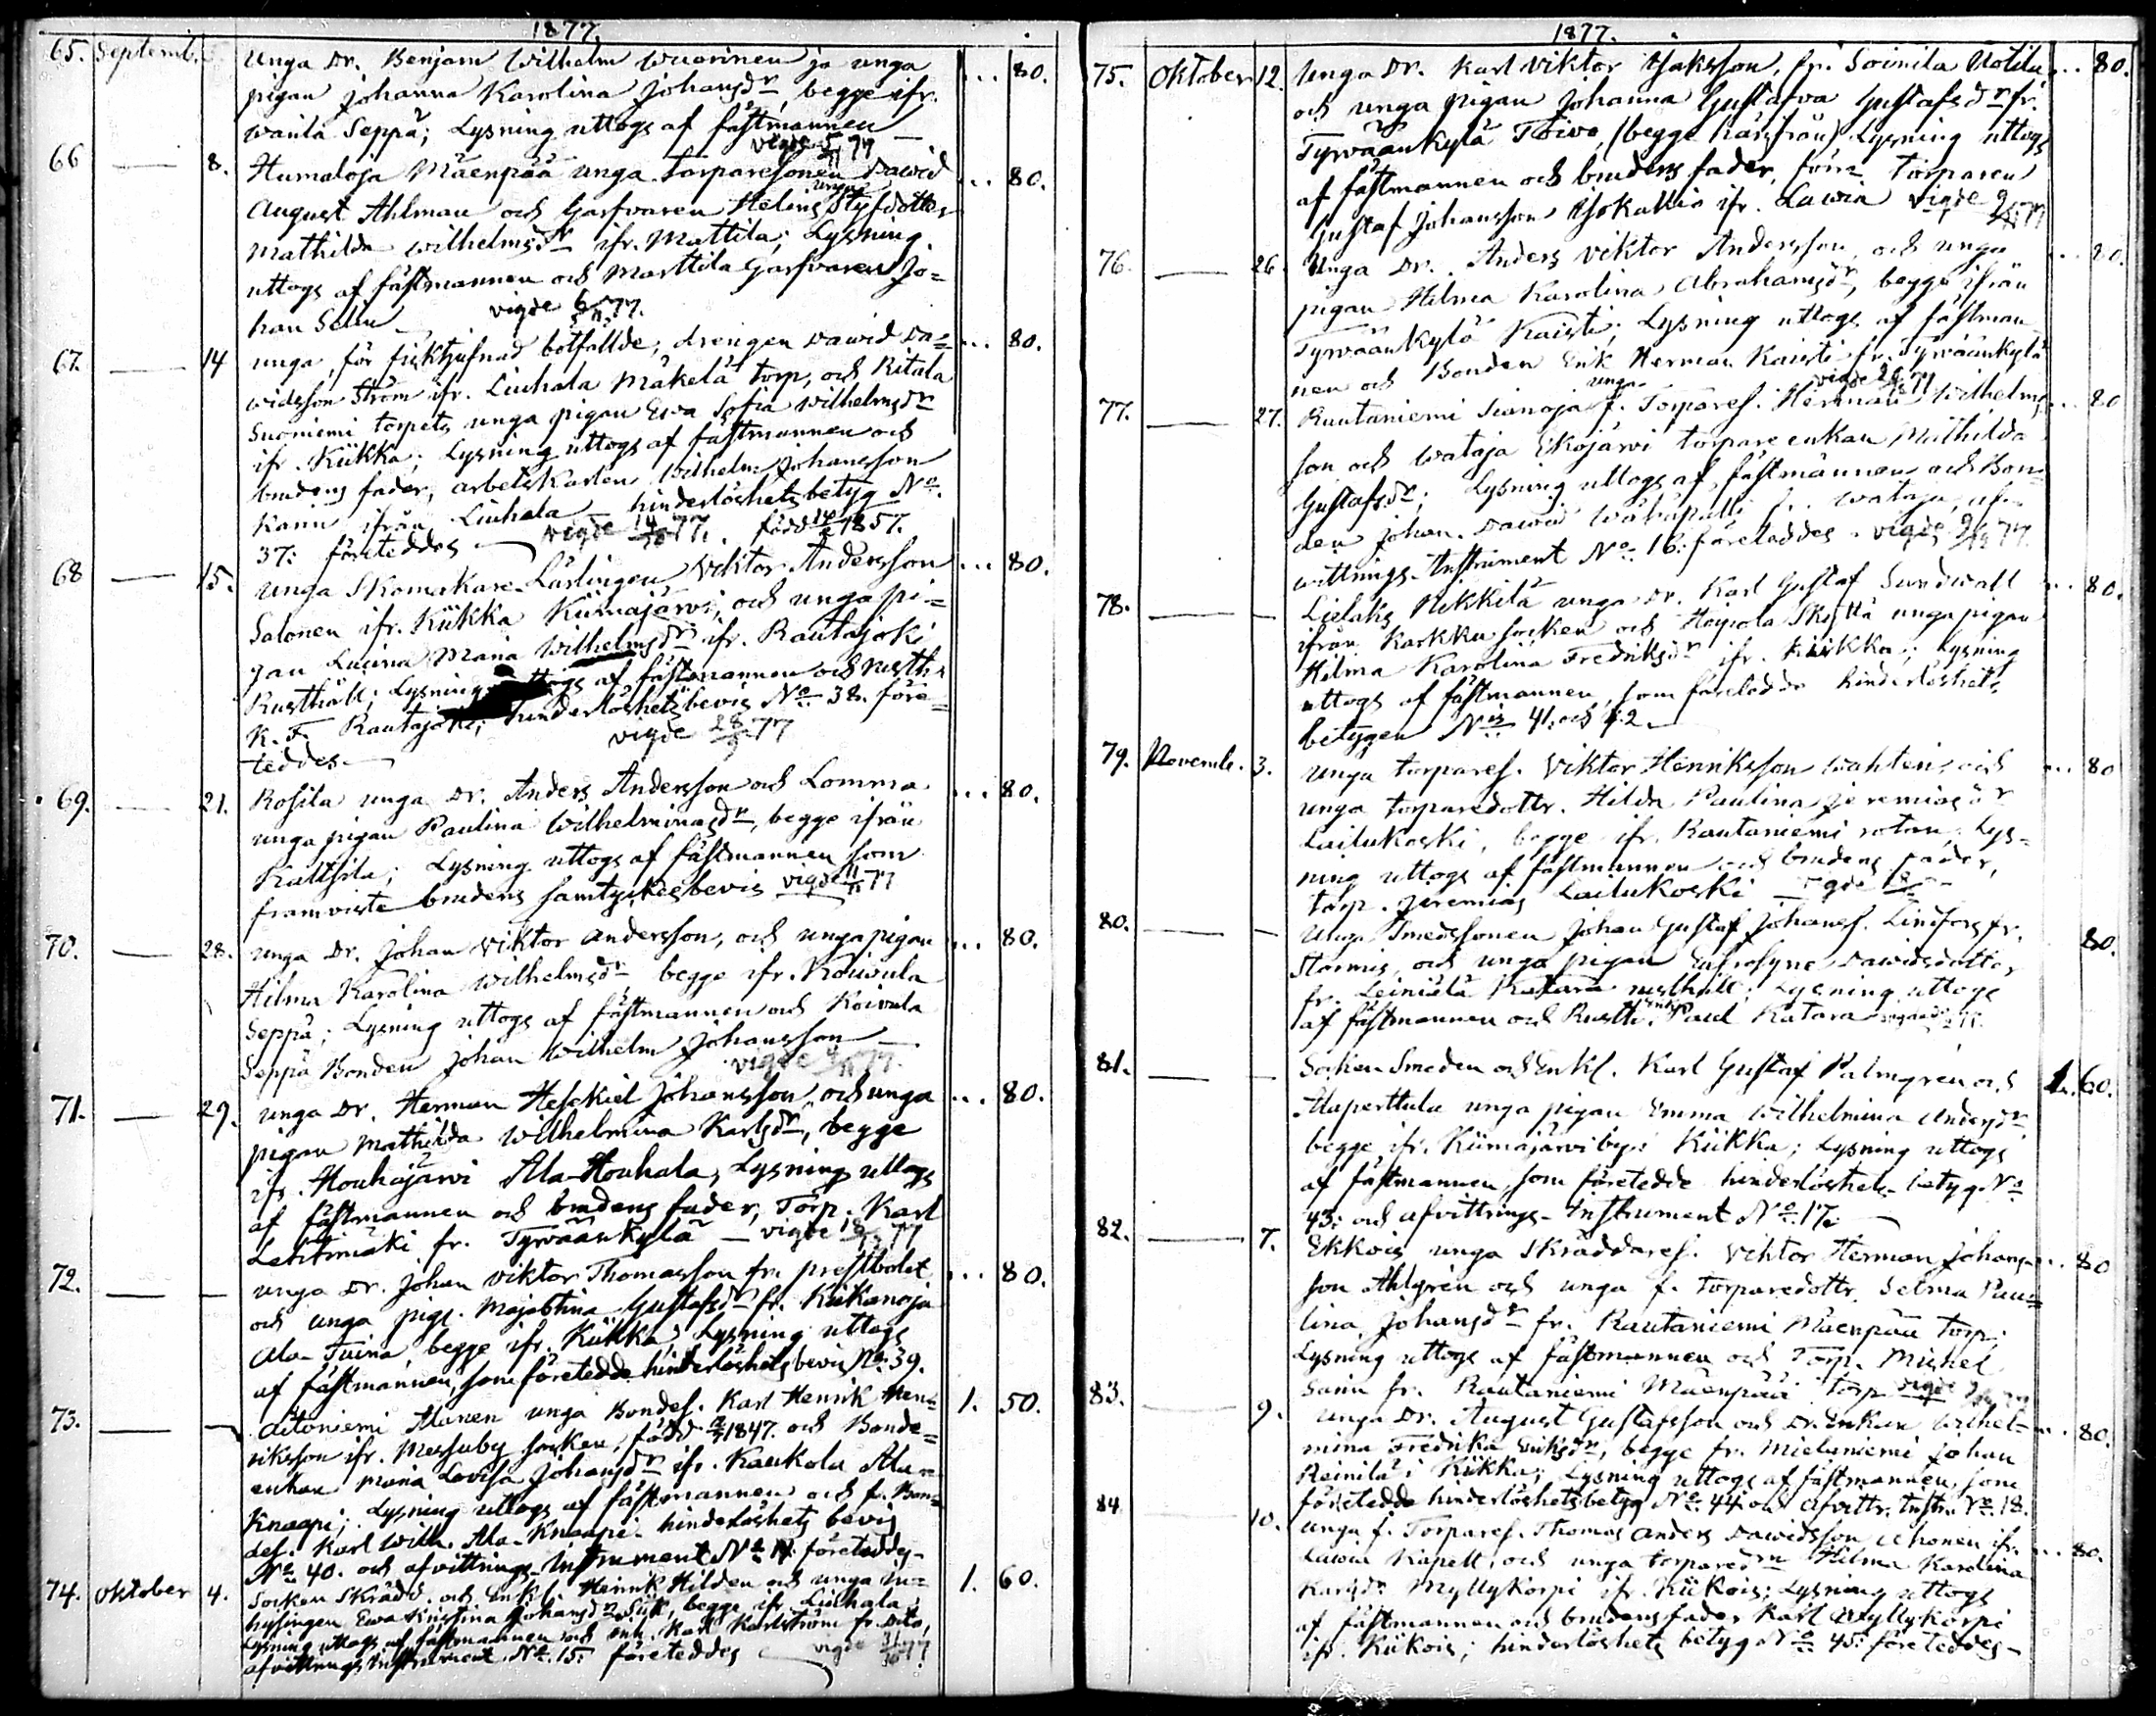 1877.
65. Septemb. Unga Dr. Benjam Wilhelm Wuorinen jo unga ... 80.
pigan Johanna Karolina Johansdr, begge ifr.
Wanta Seppä; Lysning uttogs af fästmannen
vigde 5/11 77
66 — 8. Humaloja Mäenpää unga torparesonen David ... 80.
August Ahlman och Garfvaren Helins unga Styfdotter
Mathilda Wilhelmsdr ifr. Mattila; Lysning
uttogs af fästmannen och Marttila Garfvaren Jo=
han Selin — vigde 6/11 77.
67. — 14 unga, för fickstjufnad botfällde, drengen David Da= ... 80.
widsson Ström ifr. Liuhala Mäkelä torp, och Ritala
Suoniemi torpets unga pigan Ewa Sofia Wilhelmsdr
ifr. Kiikka; Lysning uttogs af fästmannen och
brudens fader, arbetskarlen Wilhelm Johansson
Kanin ifrån Liuhala — hinderlöshets betyg No.
37: företeddes — vigde 14/10 77. född 14/2 1857.
68 — 15. unga Skomakare-Lärlingen Viktor Andersson ... 80.
Salonen ifr. Kiikka Kiimajärvi, och unga pi=
gan Lucina Maria Wilhelmsdr ifr. Rautajoki
Rusthåll; Lysning uttogs af fästmannen och rusth.
K. F. Rautajoki; hinderlöshetsbevis No 38. före=
teddes — vigde 28/9 77
69. — 21. Rosila unga Dr. Anders Andersson och Lomma ... 80.
unga pigan Paulina Wilhelminasdr, begge ifrån
Kaltsila; Lysning uttogs af fästmannen som
framviste brudens samtyckesbevis vigde 11/11 77
70. — 28. unga Dr. Johan Viktor Andersson, och unga pigan ... 80.
Hilma Karolina Wilhelmsdr begge ifr. Koivula
Seppä; Lysning uttogs af fästmannen och Koivula
Seppä Bonden Johan Wilhelm Johansson —
vigde 4/11 77.
71. — 29. unga Dr. Herman Hesekiel Johansson och unga ... 80.
pigan Mathilda Wilhelmina Karlsdr, begge
ifr. Houhajärvi Ala-Houhala, Lysning uttogs
af fästmannen och brudens fader, Torp. Karl
Lehtimäki fr. Tyrväänkylä — vigde 18/11 77
72. — — unga Dr. Johan Viktor Thomasson fr. prestbolet ... 80.
och unga pigs. Majastina Gustafsdr fr. Kiikanoja
Ala-Tuina, begge ifr. Kiikka; Lysning uttogs
af fästmannen, som företedde hinderlöshetsbevis No 39.
73. — Aitoniemi Alanen unga Bondes. Karl Henrik Hen= 1. 50.
riksson ifr. Messuby socken, född 1847. och Bonde=
enkan Maria Lovisa Johansdr ifr. Kaukola Ala
Knaapi; Lysning uttogs af fästmannen och f. Bon=
des. Karl Wilh. Ala-Knaapi. hinderlöshets bevis
No 40. och afvittrings Instrument No 14. företeddes —
74. Oktober 4. Socken Skrädd. och Enkl. Henrik Hilden och unga in= 1. 60.
hysingen Ewa Kristina Johansdr begge ifr. Liuhala;
Lysning uttogs af fästmannen och enk. Karl Karlström fr. dito,
afvittrings Instrument No 15. företeddes vigde 77
1877.
75. Oktober 12. Unga Dr. Karl Viktor Isaksson, fr. Soinila Uotila ... 80.
och unga pigan Johanna Gustafva Gustafsdr fr.
Tyrväänkylä Toivo, (begge härifrån) Lysning uttogs
af fästmannen och brudens fader, förra Torparen
Gustaf Johansson Isokallio ifr. Lawia vigde 77
76. — 26. Unga Dr. Anders Viktor Andersson, och unga ... 80.
pigan Hilma Karolina Abrahamsdr, begge ifrån
Tyrväänkylä Kaisti; Lysning uttogs af fästman
nen och Bonden Erik Herman Kaisti fr. Tyrväänkylä
vigde 77
77. — 27. Rautaniemi Sianoja unga f. Torpares. Herman Wilhelms ... 80
son och Wataja Ekojärvi torpare enkan Mathilda
Gustafsdr; Lysning uttogs af fästmannen och Bon=
den Johan David Wataja, af-
wittrings-Instrument No 16: företeddes. vigde 77.
78. — — Lielaks Nikkilä unga Dr. Karl Gustaf Sundwall ... 80.
ifrån Karkku socken och Heipola Skyttä unga pigan
Hilma Karolina Fredriksdr ifr. Kiikka; Lysning
uttogs af fästmannen, som företedde hinderlöshets
betygen Nis 41. och 42 —
79. Novemb. 3. Unga torpares. Viktor Henriksson Wahteri, och ... 80
unga torparedottr. Hilda Paulina Jeremiasdr
Lailukoski, begge ifr. Rautaniemi rotan; Lys=
ning uttogs af fästmannen och brudens fader,
torp. Jeremias Lailukoski — vigde
80. — — Unga Smedssonen Johan Gustaf Johans. Lindfors fr. 80.
Stormis, och unga pigan Eufrosyne Davidsdotter
fr. Leiniälä Katara rusthåll; Lysning uttogs
af fästmannen och Rusth. Paul Katara
81. — — Socken Smeden och Enkl. Karl Gustaf Palmgren och 1. 60.
Alaperttula unga pigan Emma Wilhelmina Andersdr
begge ifr. Kiimajärvi by i Kiikka; Lysning uttogs
af fästmannen, som företedde hinderlöshets-betyg No
43: och afvittrings-Instrument No 17: —
82. — 7. Ekkois unga Skräddares. Viktor Herman Johans= ... 80
son Ahlgrén och unga f. torparedottr. Selma Pau=
lina Johansdr fr. Rautaniemi Mäenpää torp;
Lysning uttogs af fästmannen och Torp. Michel
Sanin fr. Rautaniemi Mäenpää torp vigde
83. — 9. Unga Dr. August Gustafsson och Dr. Enkan Wilhel= ... 80.
mina Fredrika Eriksdr, begge fr. Mielaniemi Johan
Reinilä i Kiikka; Lysning uttogs af fästmannen, som
företedde hinderlöshetsbetyg No 44. och afvittr. Instr. No 18.
84 — 10. Unga f. Torpares. Thomas Anders Davidsson Ahonen ifr. ... 80.
Lawia Kapell, och unga torparedrn Hilma Karolina
Karlsdr Myllykorpi ifr. Kiikois; Lysning uttogs
af fästmannen och brudens fader Karl Myllykorpi
ifr. Kiikois; hinderlöshets betyg No 45: företeddes —